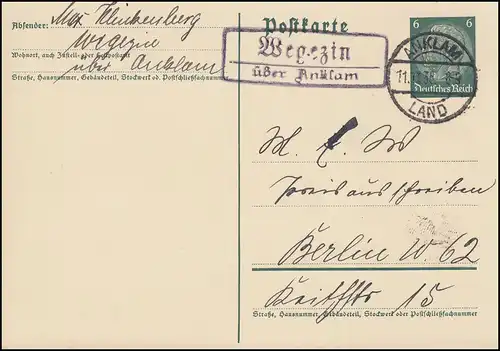 Absender: Max Kleinkenberg
Wegezin
Wohnort, auch Zustell- oder Leitpostamt
über Anklam
Straße, Hausnummer, Gebäudeteil, Stockwerk od. Postschließfachnummer
Postkarte
Wegezin
über Anklam
6 6
Deutsches Reich
ANKLAM
11.
LAND
M. f. W
Preisausschreiben
Berlin W. 62
Keithstr 15
Straße, Hausnummer, Gebäudeteil, Stockwerk oder Postschließfachnummer